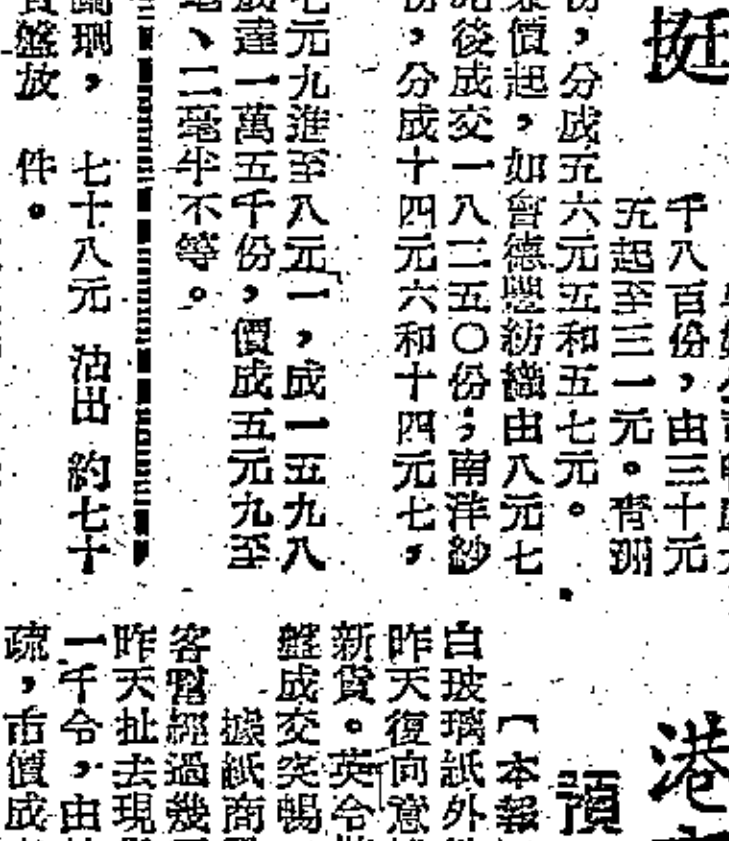 挺
千八百份，由三十元
五起至三一元。青洲
份，分成五六元五和五七元。
價起，如會德豐紡織由八元七
後成交一八二五〇份；南洋紗
，分成十四元六和十四元七，
七元九進至八元一，成一五九八
達一萬五千份，價成五元九至
、二毫半不等。
七十八元 沽出 約七十
盤放 件。
港
預
【本報
白玻璃紙外
昨天復向意
新貨。英令
盤成交突暢
據紙商
客幫經過幾
昨天扯去現
一千令，由
疏，市價成